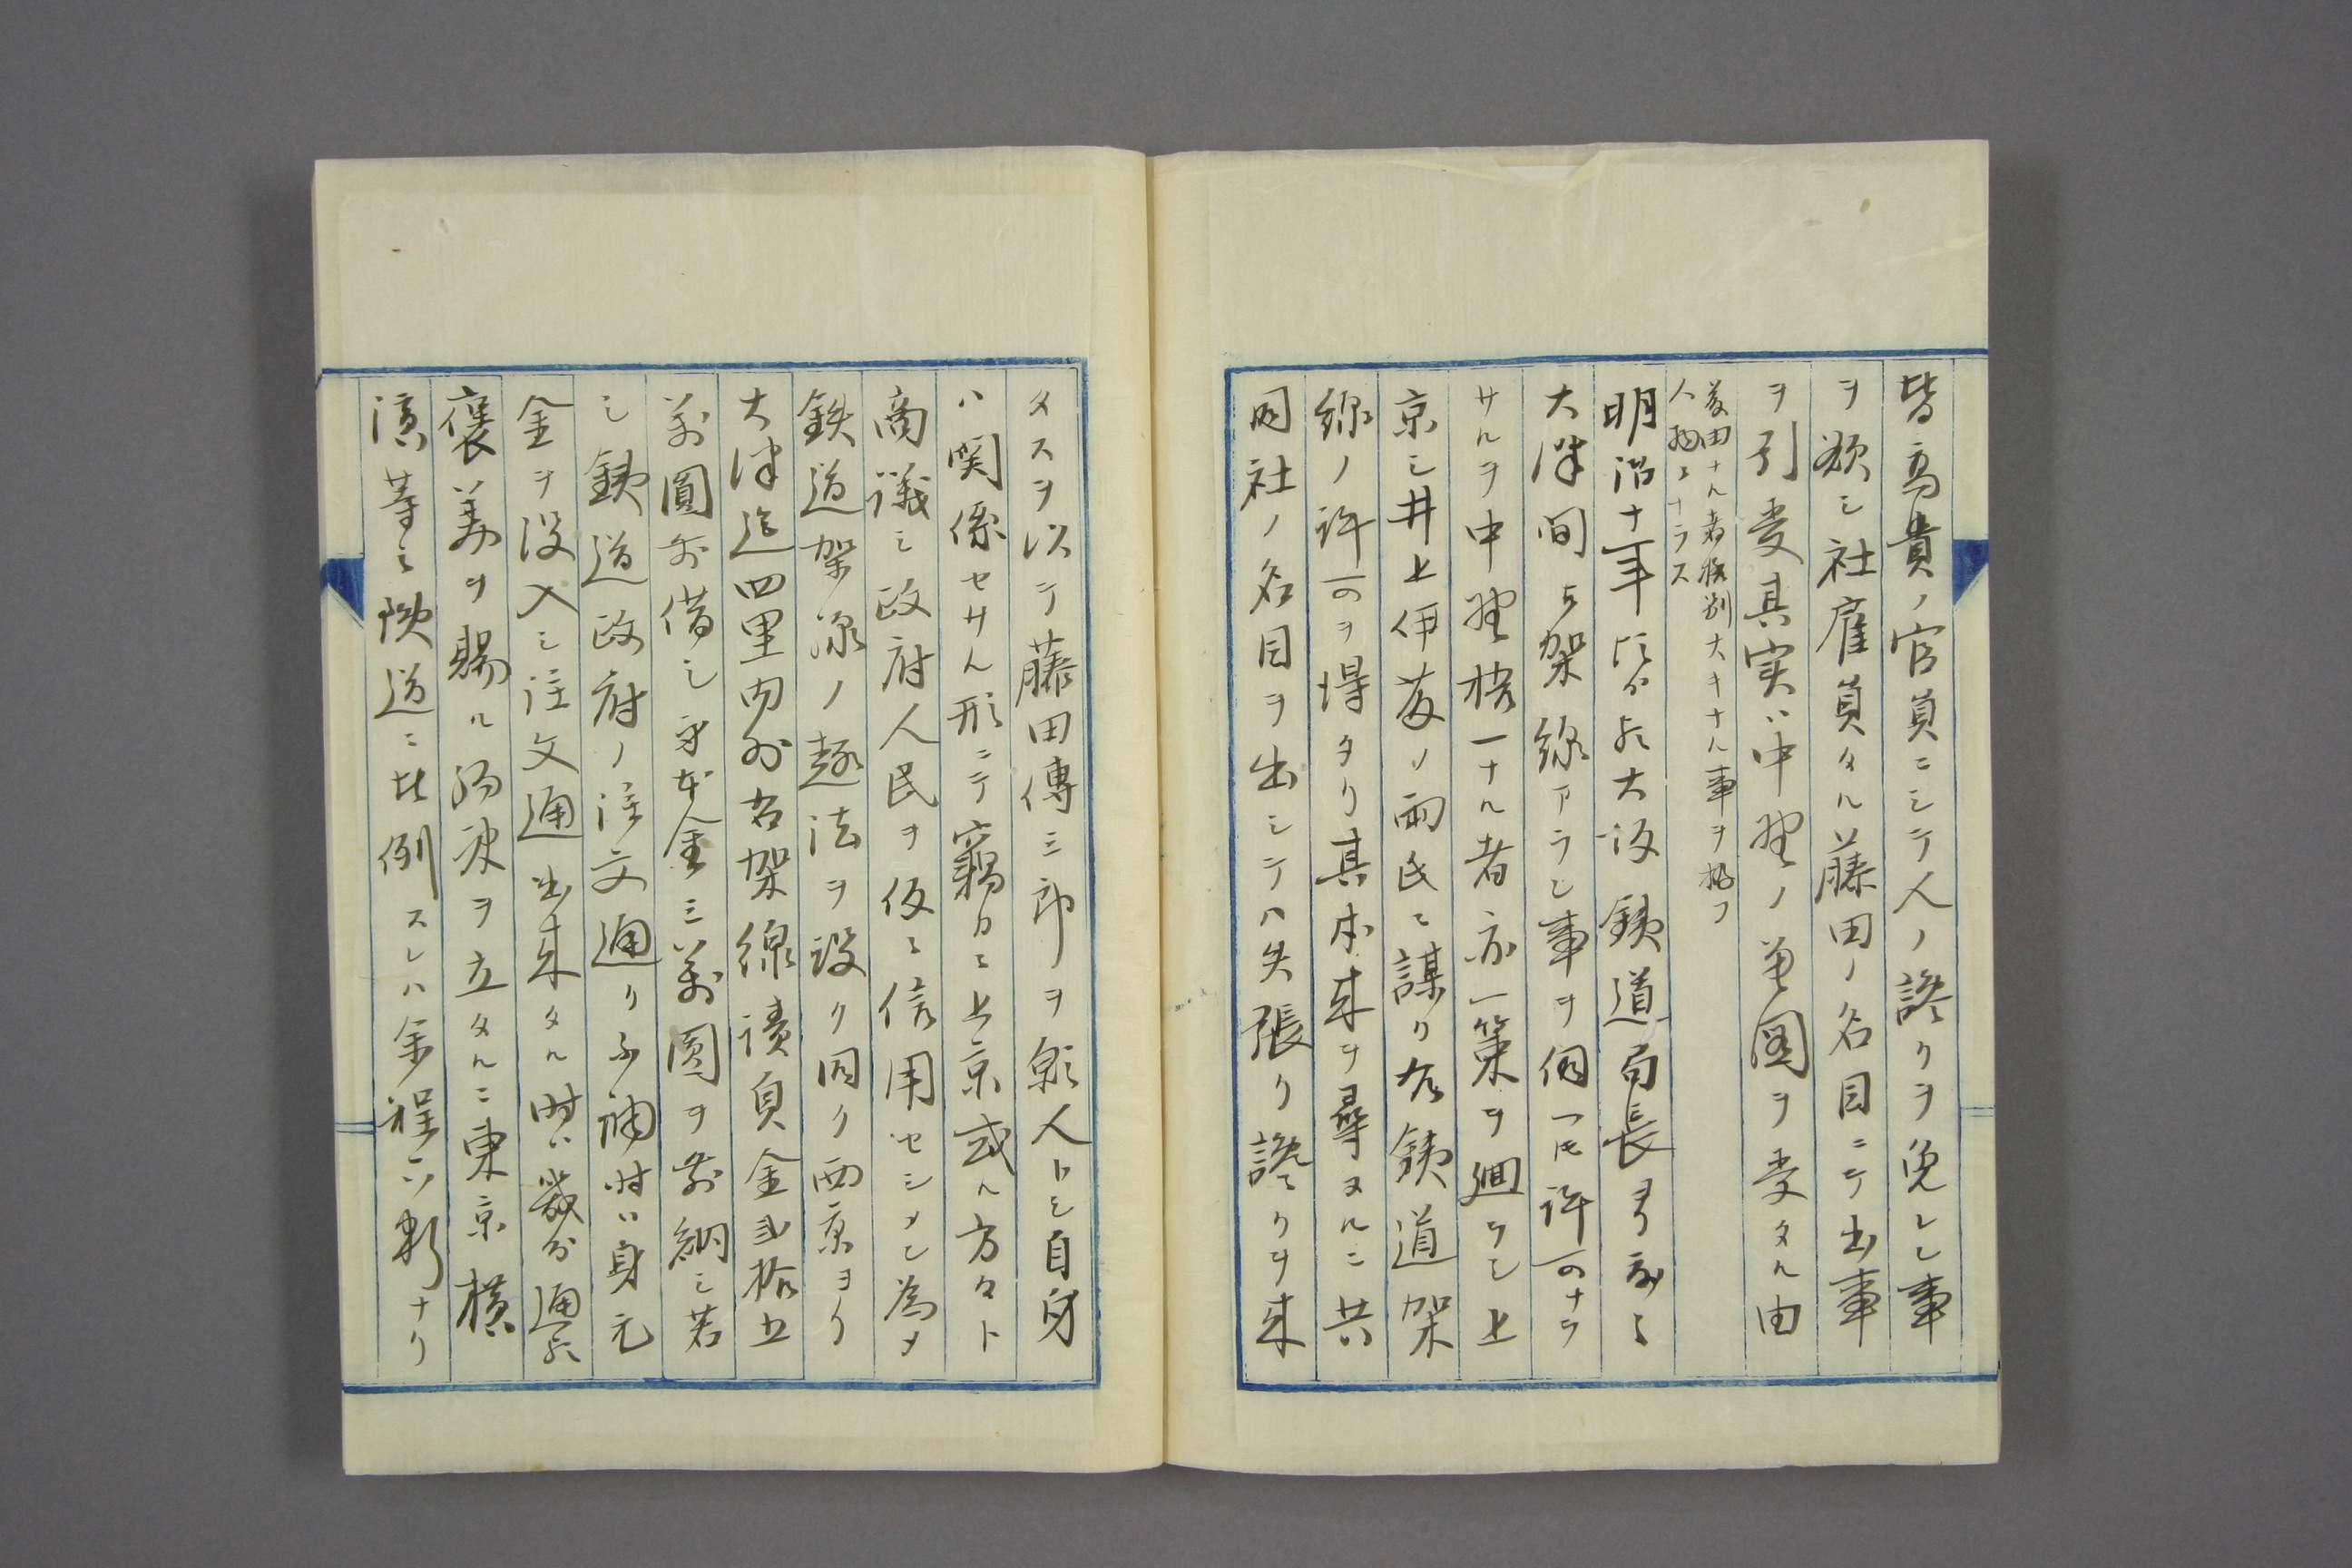 皆高貴ノ官員ニシテ人ノ謗リヲ免レン事
ヲ欲シ社雇員タル藤田ノ名目ニテ出事
ヲ引受其実ハ中野ノ差図ヲ受タル由
藤田ナル者格別大キナル事ヲ扱フ
人物ニナラス
明治十一年頃ヨリ大坂鉄道局長
大津間ヘ架線アラン事ヲ伺フ氏許可ナラ
サルヲ中野梧一ナル者亦一策ヲ廻ラシ上
京シ井上伊藤ノ両氏ニ謀リ右鉄道架
線ノ許可ヲ得タリ其本来ヲ尋ヌルニ共
同社ノ名目ヲ出シテハ矢張リ謗リヲ来
タスヲ以テ藤田傳三郎ヲ願人トシ自身
ハ関係セサル形ニテ竊カニ上京或ル方々ト
商議シ政府人民ヲ仮ニ信用セシメン為メ
鉄道架線ノ趣法ヲ設ク因ク西京ヨリ
大津迄四里内外右架線請負金弐拾五
萬圓前借シ身本金三萬圓ヲ前納シ若
シ鉄道政府ノ注文通リニ 時ハ身元
金ヲ没入シ注文通出来タル時ハ幾分通
褒美ヲ賜ル約定ヲ立タルニ東京横
濱等之鉄道ニ比例スレハ余程ハ ナリ